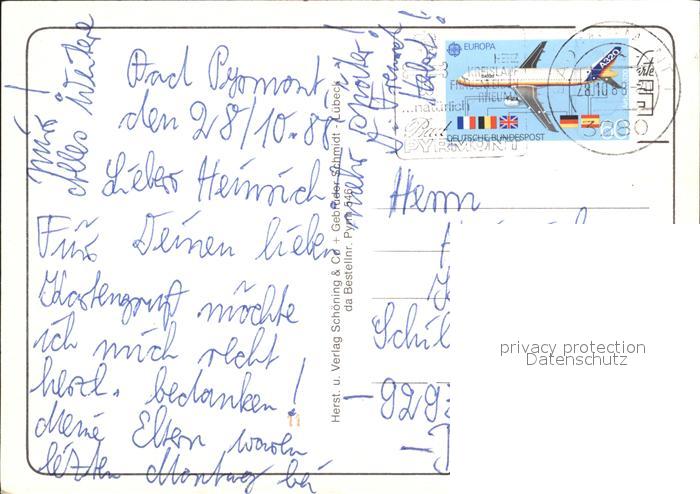 Bad Pyrmont
den 28/10-88
Lieber Heinrich
Für Deinen lieben
Kartengruß möchte
ich mich recht
herzl. bedanken!
Meine Eltern waren
letzten Montag bei
mir!
Alles Weitere
mehr später!
Herst. u. Verlag Schöning & Co + Gebrüder Schmidt · Lübeck
da Bestellnr. Pyrm
EUROPA
A320
DEUTSCHE BUNDESPOST
80
natürlich
Bad
PYRMONT
28.10.88
Herrn
Schil
- 929
privacy protection
Datenschutz